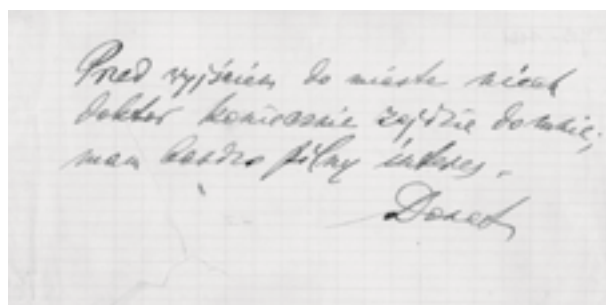 Przed wyjściem do miasta niech
doktor koniecznie zajdzie do mnie,
mam bardzo pilny interes.
Donat